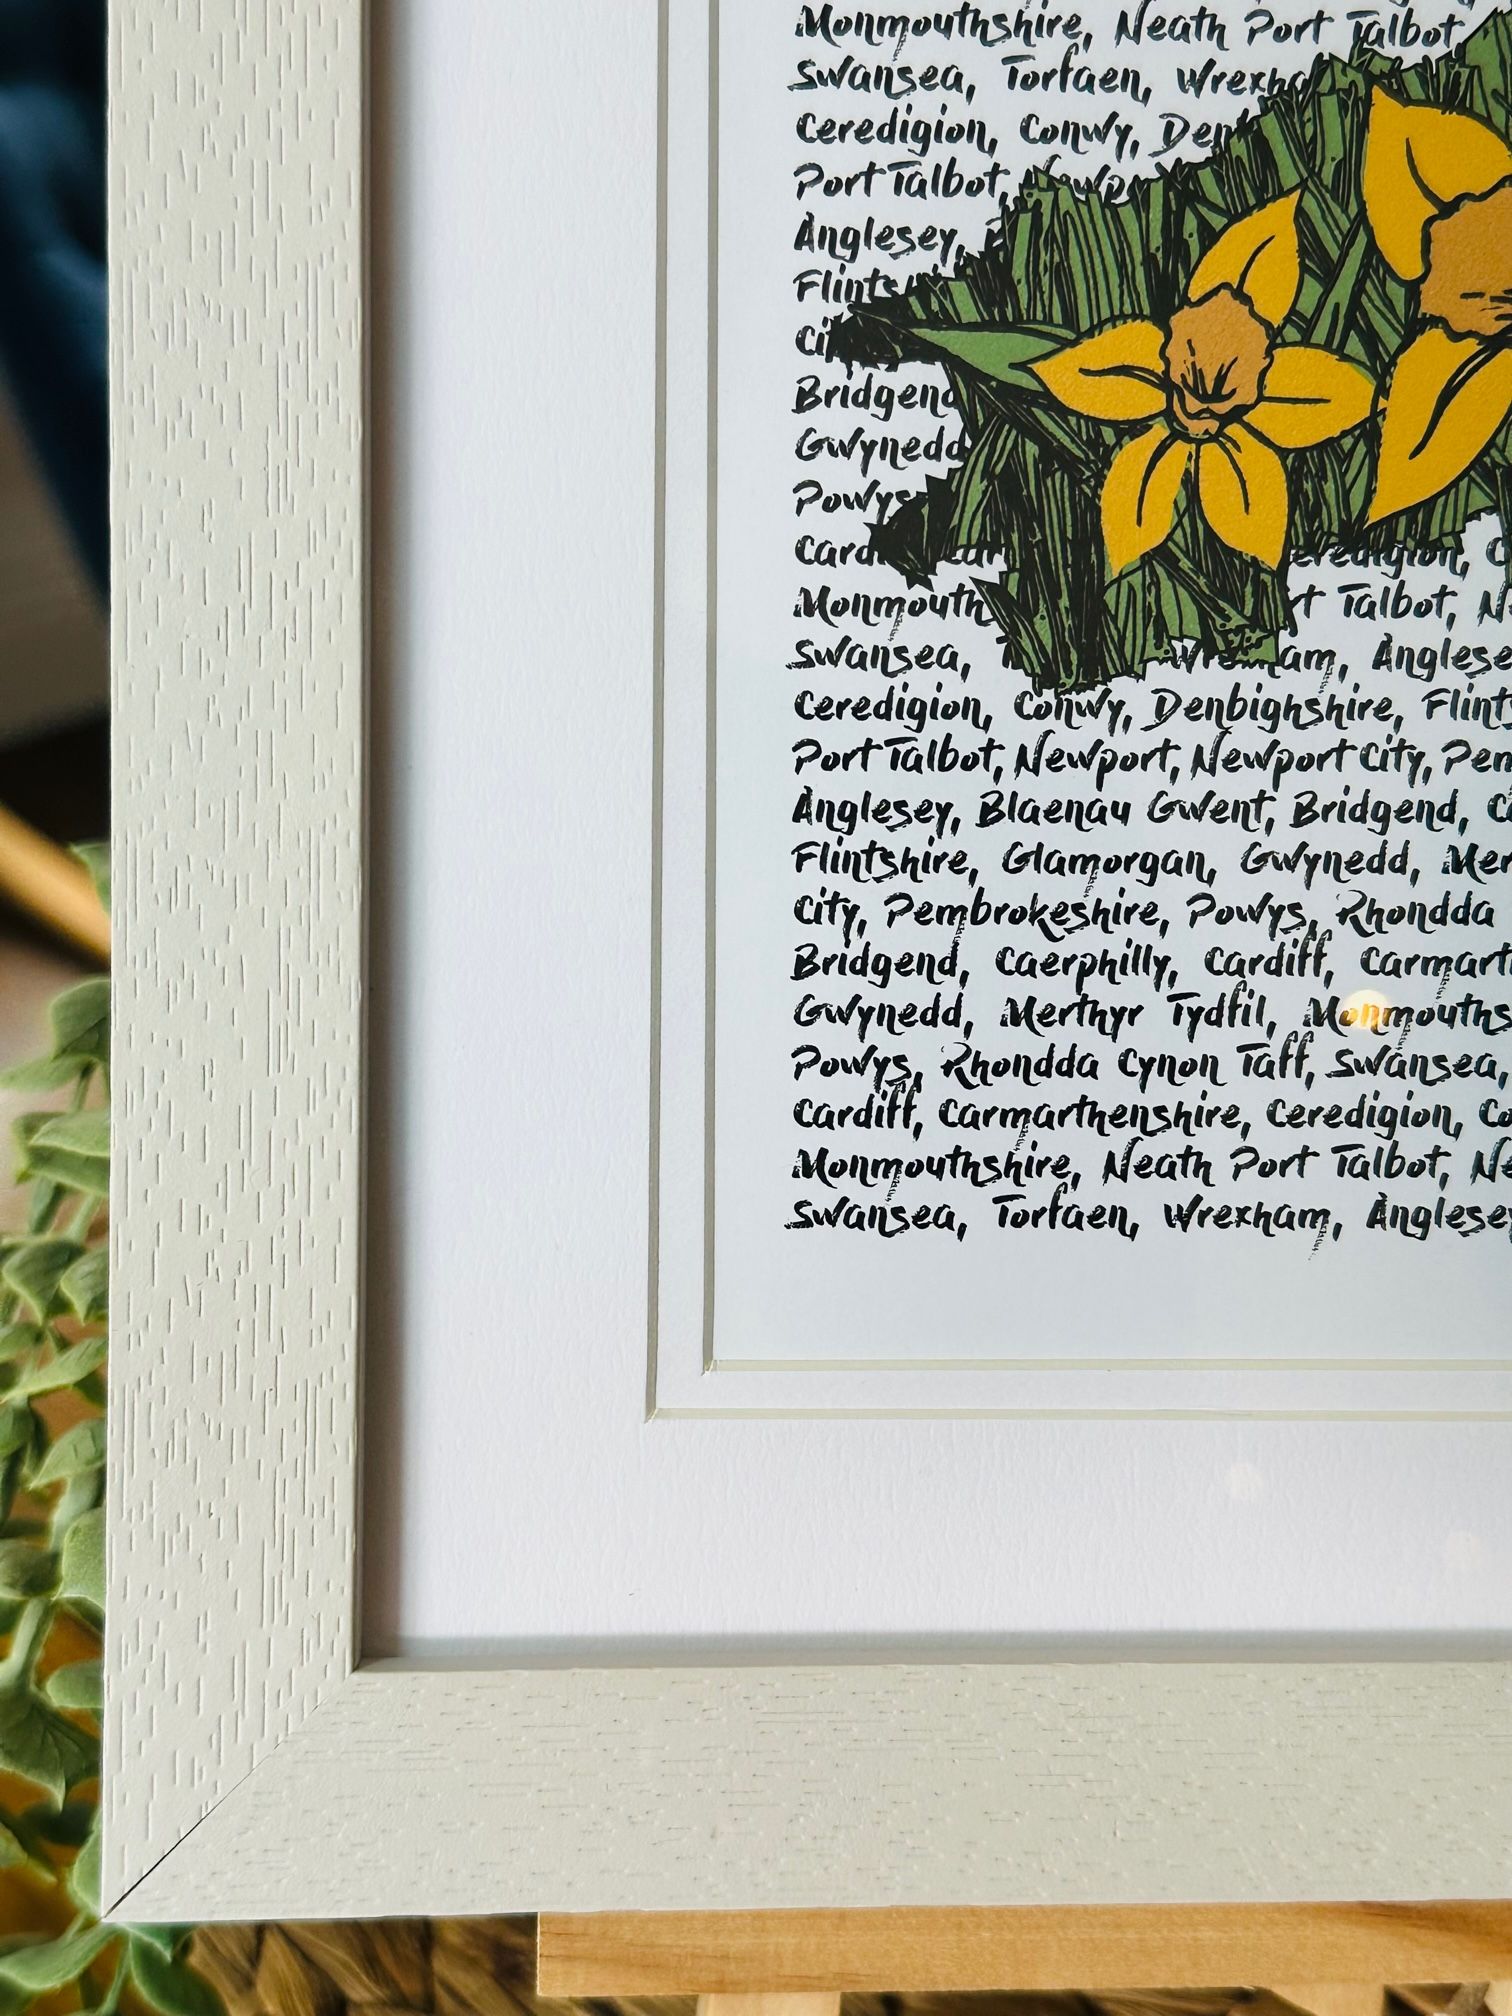 Monmouthshire, Neath Port Talbot,
Swansea, Torfaen,
Ceredigion, Conwy,
Port Talbot,
Anglesey,
Bridgend
Gwynedd
Powys
Monmouth
Talbot,
Swansea,
Ceredigion, Conwy, Denbighshire,
Port Talbot, Newport, Newport City,
Anglesey, Blaenau Gwent, Bridgend,
Flintshire, Glamorgan, Gwynedd,
City, Pembrokeshire, Powys, Rhondda
Bridgend, Caerphilly, Cardiff,
Gwynedd, Merthyr Tydfil,
Powys, Rhondda Cynon Taff, Swansea,
Cardiff, Carmarthenshire, Ceredigion,
Monmouthshire, Neath Port Talbot,
Swansea, Torfaen, Wrexham, Anglesey